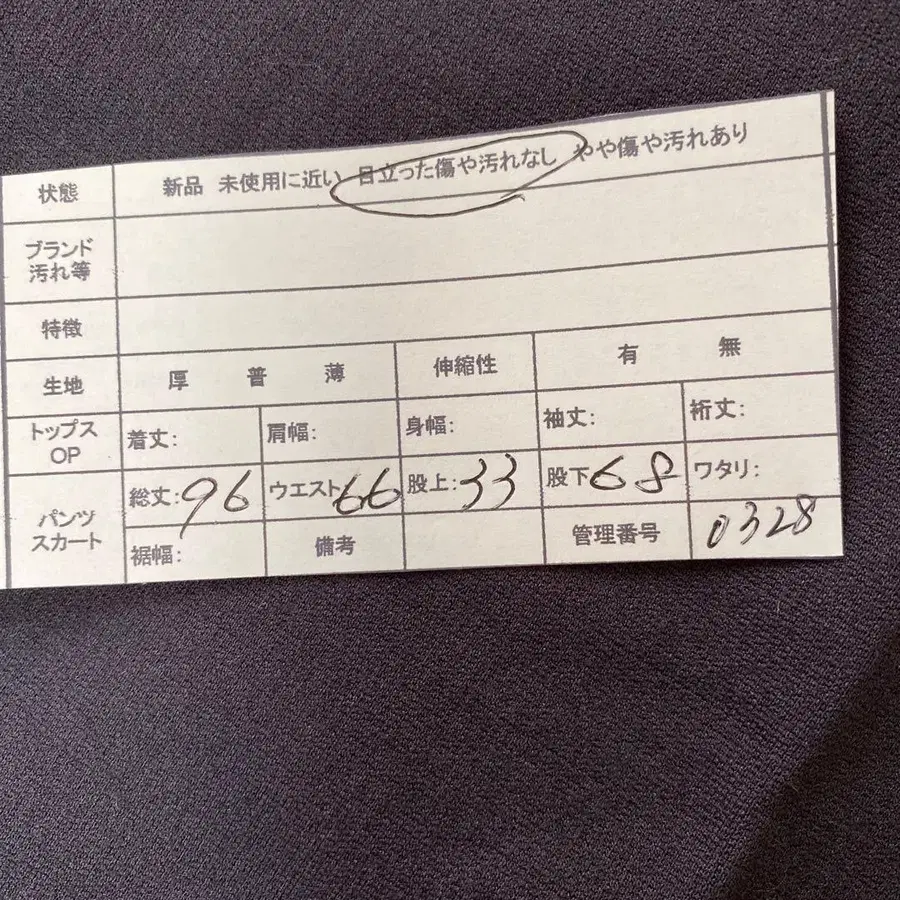 状態 新品 未使用に近い 目立った傷や汚れなし やや傷や汚れあり
ブランド
汚れ等
特徴
生地 厚 普 薄 伸縮性 有 無
トップス
OP
着丈: 肩幅: 身幅: 袖丈: 裄丈:
パンツ
スカート
総丈:96 ウエスト66 股上:33 股下68 ワタリ:
裾幅: 備考 管理番号 0328